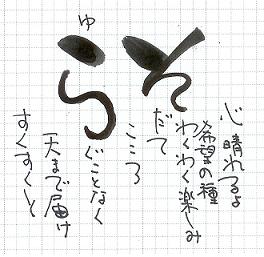 心晴れるよ
希望の種
わくわく楽しみ
そだて
こころ
ゆらぐことなく
天まで届け
すくすくと